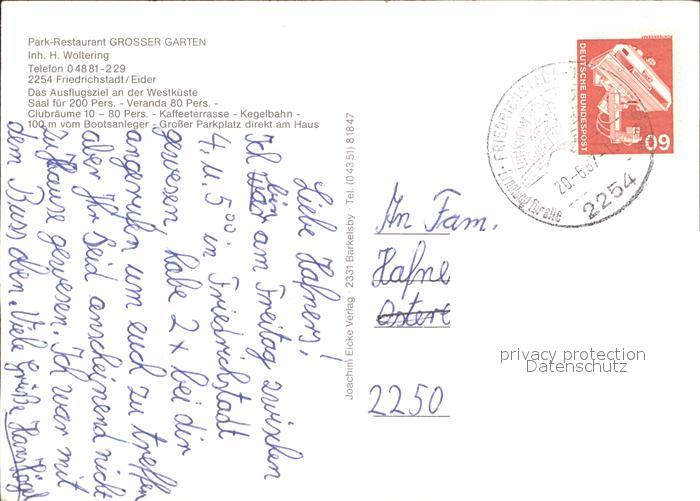 Park-Restaurant GROSSER GARTEN
Inh. H. Woltering
Telefon 0 48 81 - 2 29
2254 Friedrichstadt/Eider
Das Ausflugsziel an der Westküste
Saal für 200 Pers. - Veranda 80 Pers. -
Clubräume 10 – 80 Pers. - Kaffeeterrasse - Kegelbahn -
100 m vom Bootsanleger - Großer Parkplatz direkt am Haus
Liebe Hafners!
Ich bin am Freitag zwischen
4. u. 5⁰⁰ in Friedrichstadt
gewesen, habe 2 x bei dir
angerufen um euch zu treffen
aber Ihr seid anscheinend nicht
zuhause gewesen. Ich war mit
dem Buss da. Viele Grüße
Joachim Eicke Verlag 2331 Barkelsby · Tel. (0 43 51) 8 18 47
DEUTSCHE BUNDESPOST
60
FRIEDRICHSTADT
für alle
20.-6.87
2254
An Fam.
Hafne
Ostere
2250
privacy protection
Datenschutz